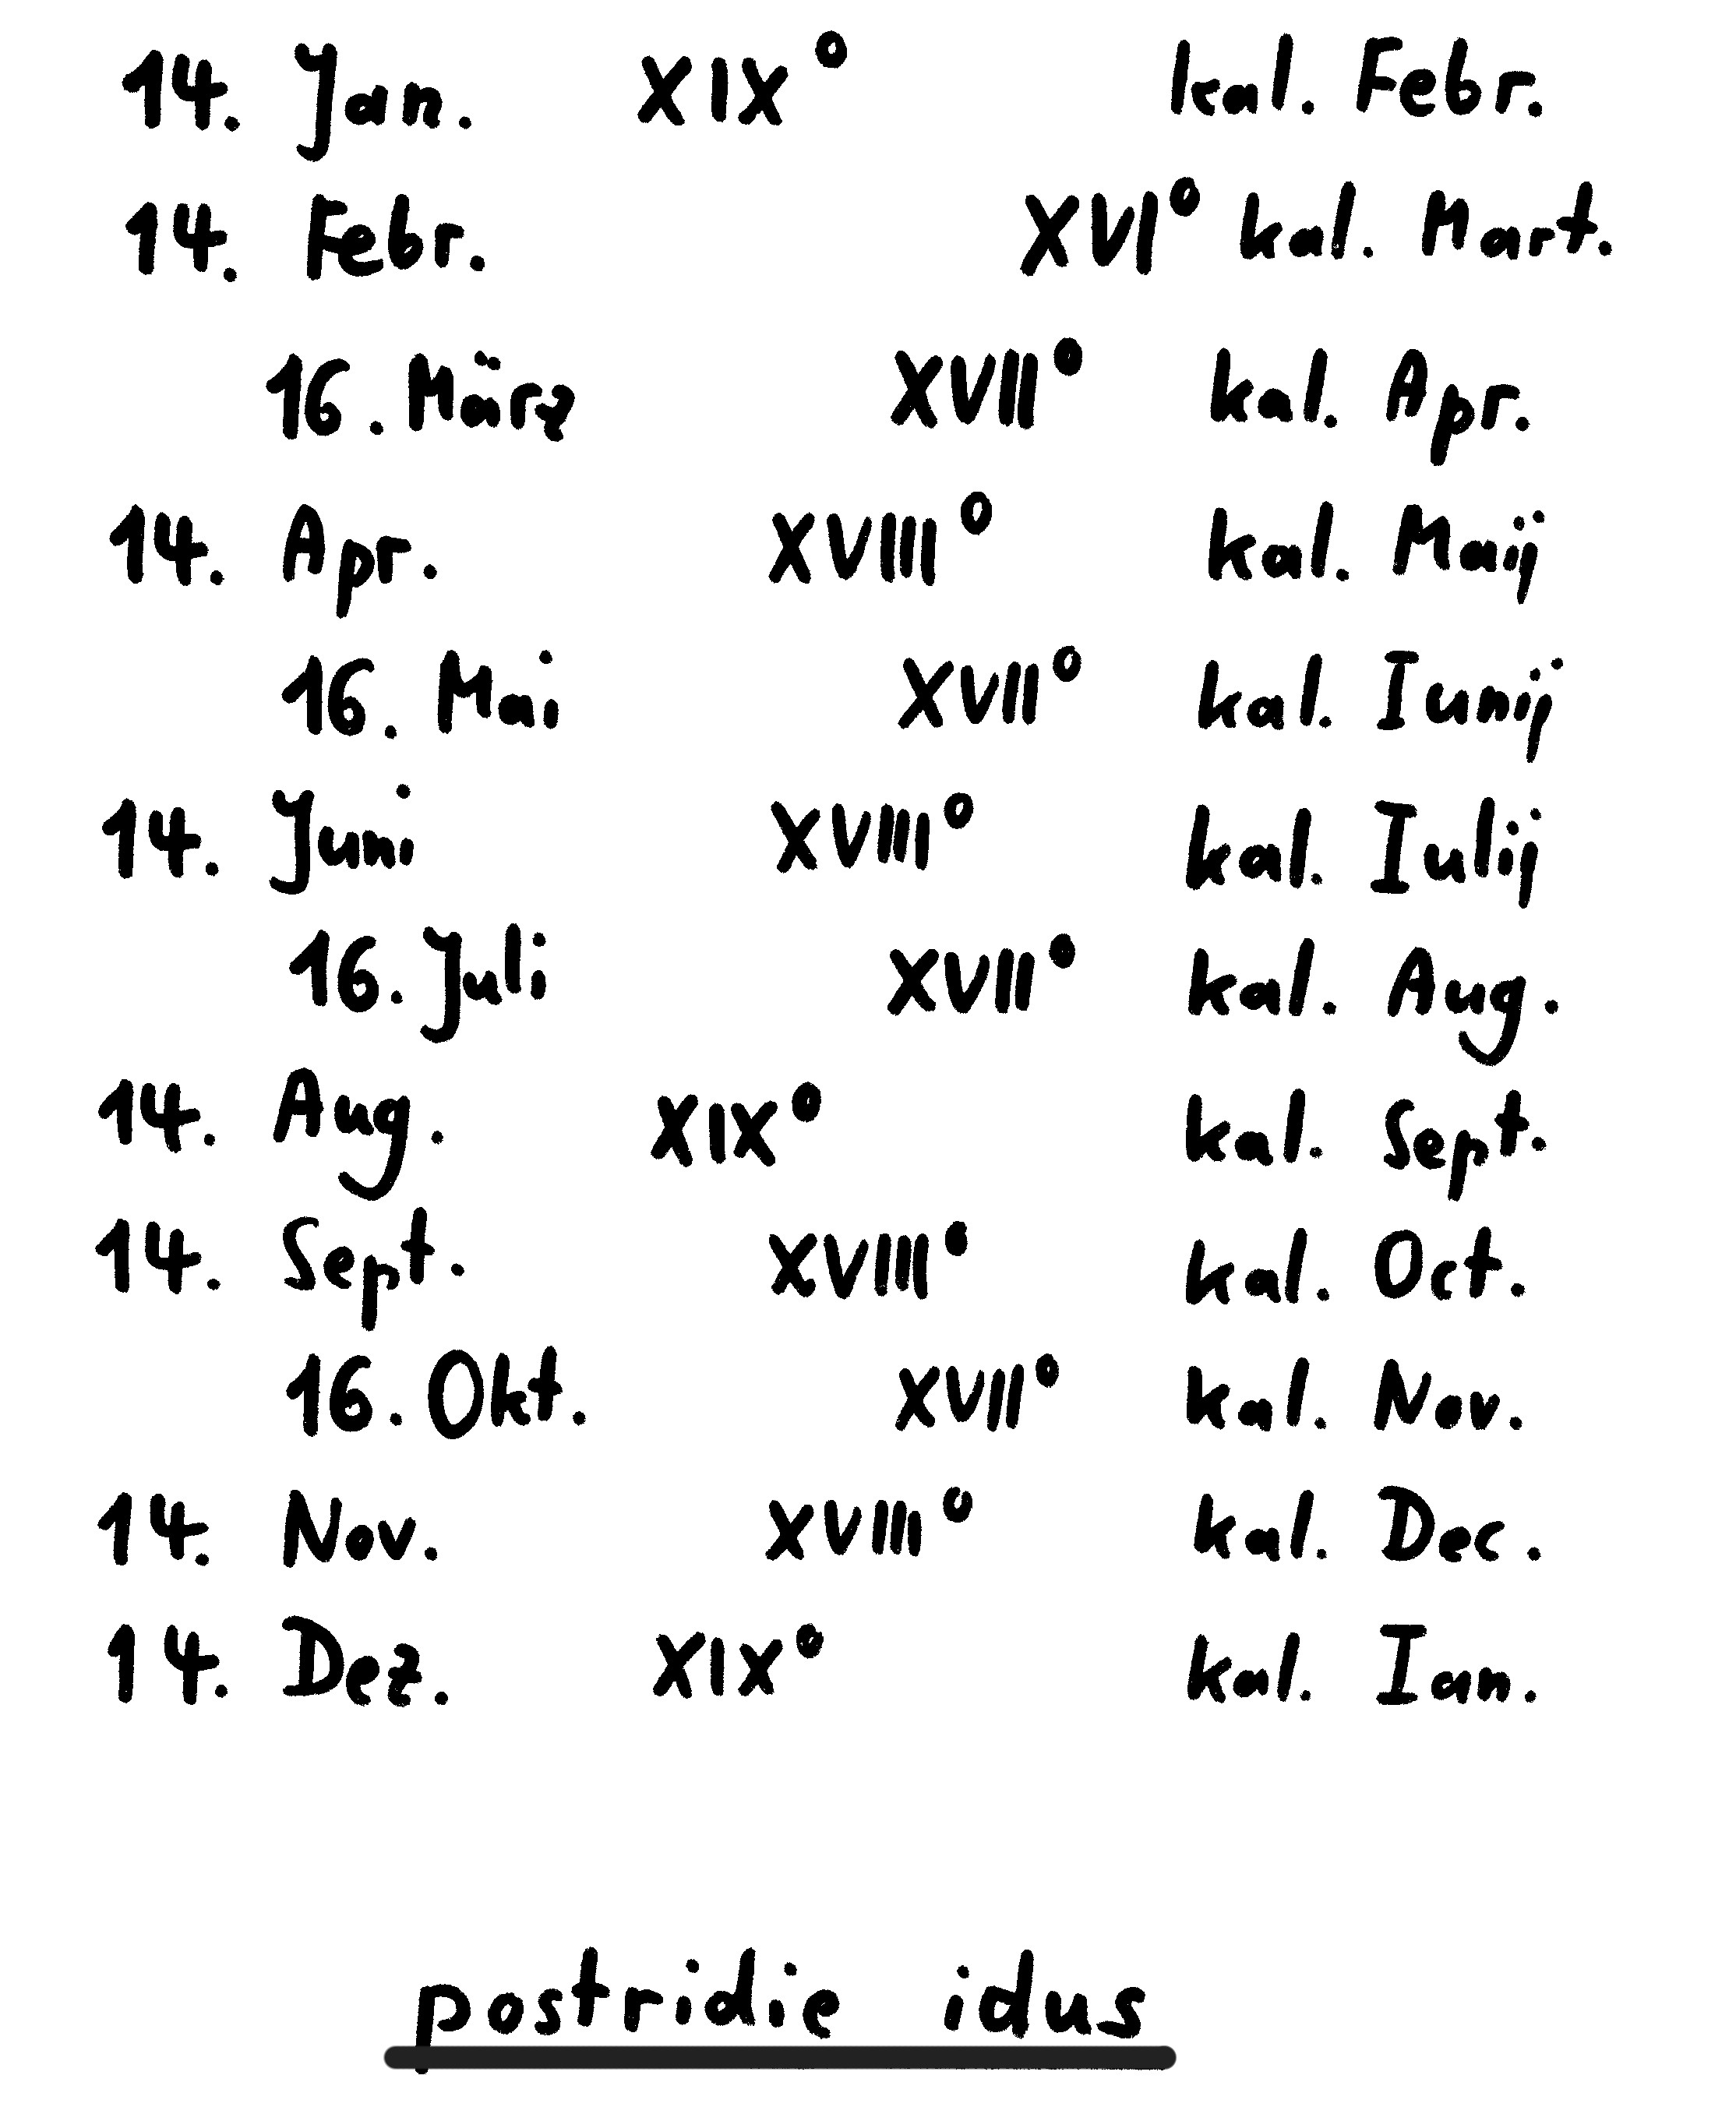 14. Jan. XIX° kal. Febr.
14. Febr. XVI° kal. Mart.
16. März XVII° kal. Apr.
14. Apr. XVIII° kal. Maij
16. Mai XVII° kal. Iunij
14. Juni XVIII° kal. Iulij
16. Juli XVII° kal. Aug.
14. Aug. XIX° kal. Sept.
14. Sept. XVIII° kal. Oct.
16. Okt. XVII° kal. Nov.
14. Nov. XVIII° kal. Dec.
14. Dez. XIX° kal. Ian.
postridie idus